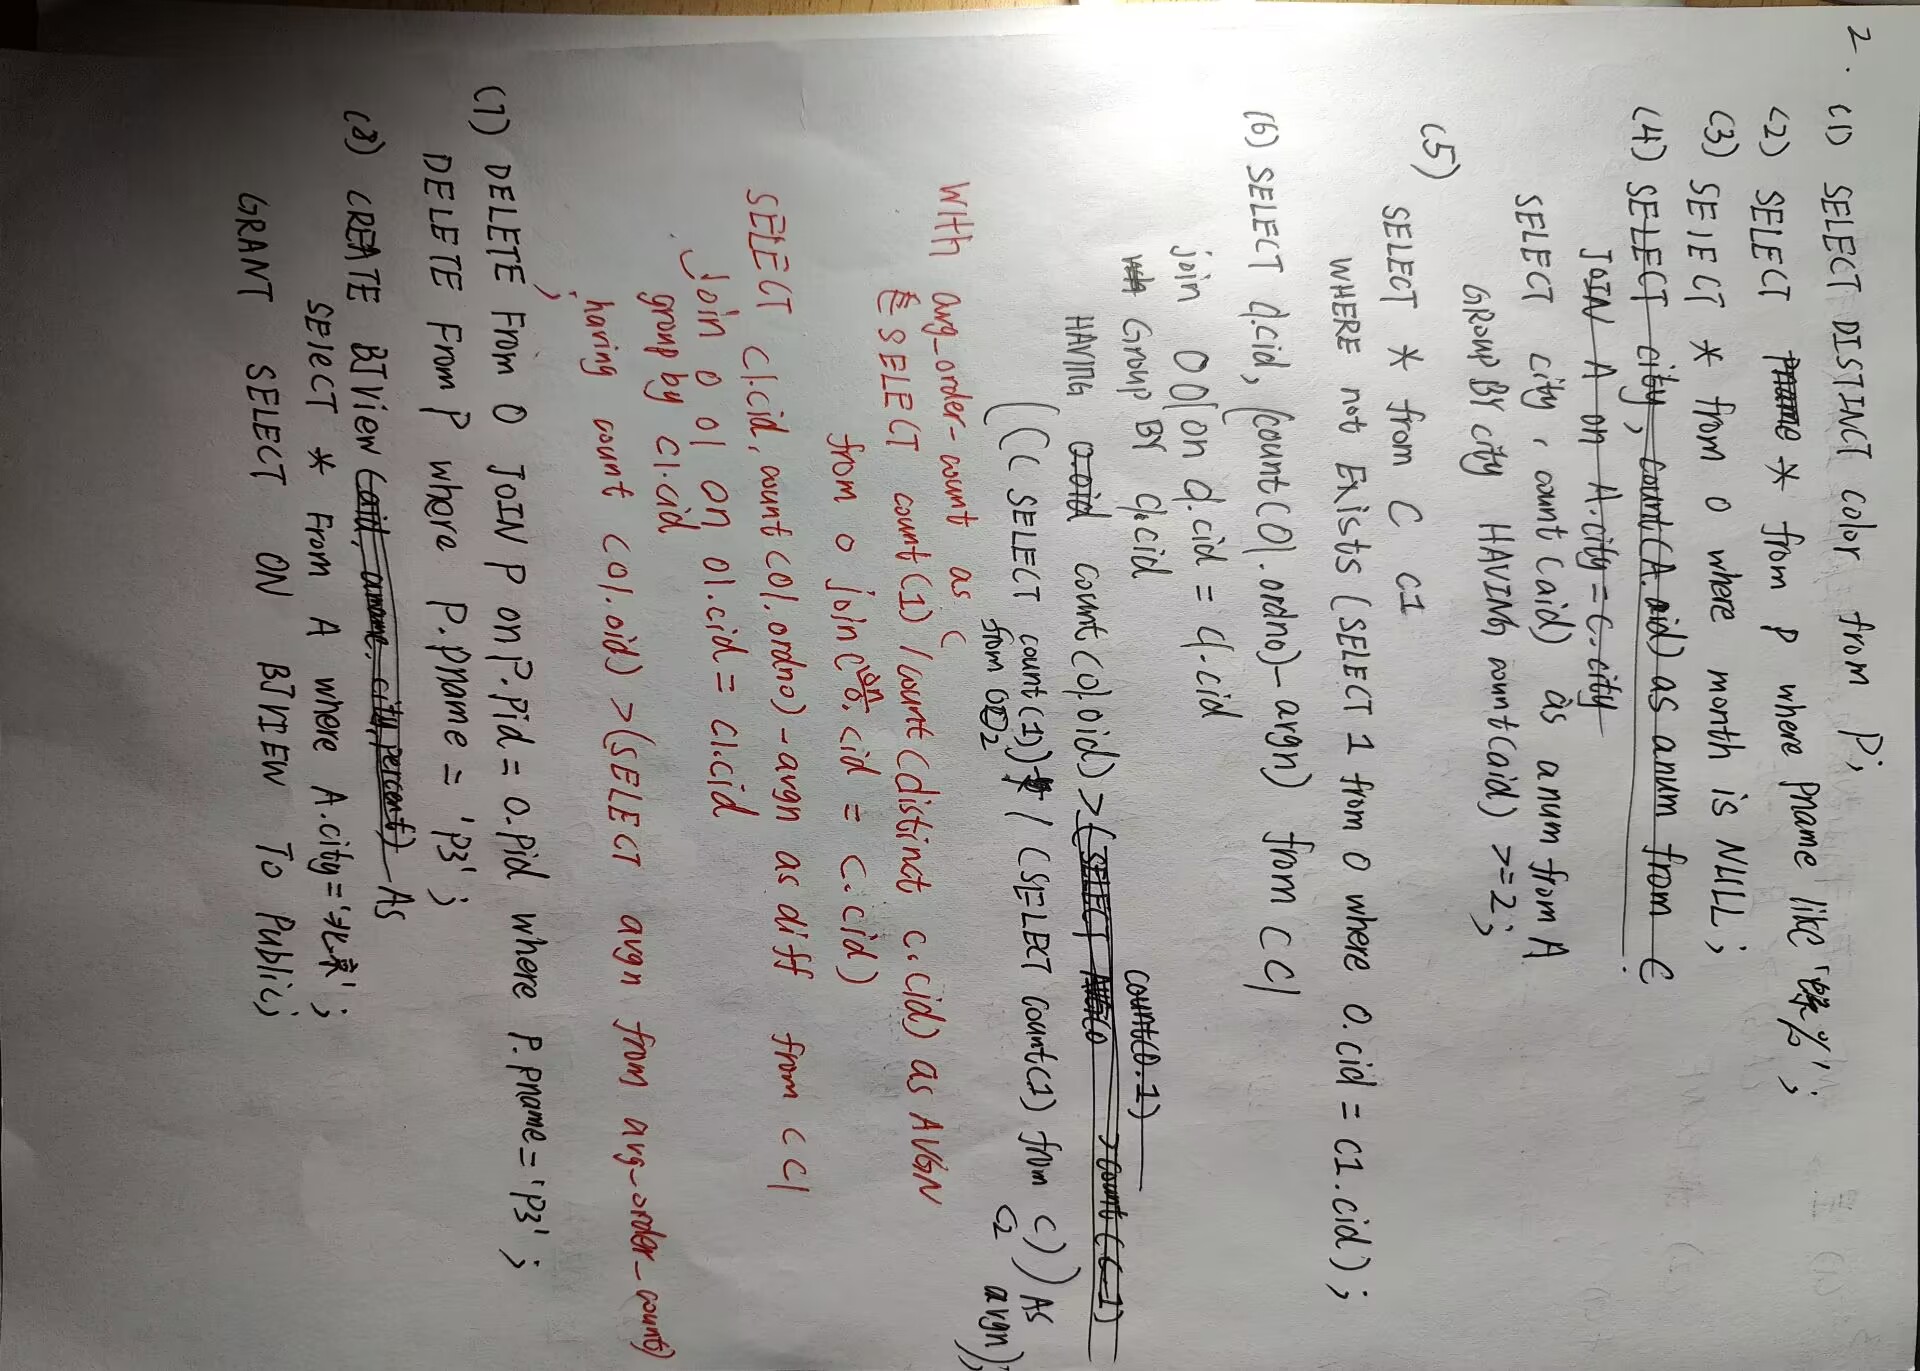 2.
(1) SELECT DISTINCT color from P;
(2) SELECT pname * from p where pname like '螺%';
(3) SElECT * from O where month is NULL;
(4) SELECT city, count(A.aid) as anum from C
JOIN A on A.city = C.city
SELECT city, count(aid) as anum from A
GROUP BY city HAVING count(aid) >=2;
(5)
SELECT * from C C1
WHERE not Exists (SELECT 1 from O where O.cid = C1.cid);
(6) SELECT C1.cid, (count(O1.ordno) - argn) from C C1
join O O1 on C1.cid = C1.cid
wh Group BY C1.cid
count(O.1)
HAVING O.oid count(O1.oid) > (SELECT AVG(O > count(C.1)
(((SELECT count(1)) / (SELECT count(1) from C)) AS
from O O2 C2 avgn);
With avg_order-count as (
SELECT count(1) / count(distinct c.cid) as AVGN
from o join C on o.cid = c.cid)
SELECT C1.cid, count(O1.ordno) - avgn as diff from C C1
Join o o1 on o1.cid = c1.cid
group by c1.cid
having count (o1.oid) > (SELECT avgn from avg_order_count)
;
(7) DELETE From O JOIN P on P.pid = O.pid where P.pname = 'P3';
DELETE From P where P.pname = 'P3';
(8) CREATE BJView (aid, aname, city, percent) As
SElECT * From A where A.city = '北京';
GRANT SELECT ON BJVIEW To Public;